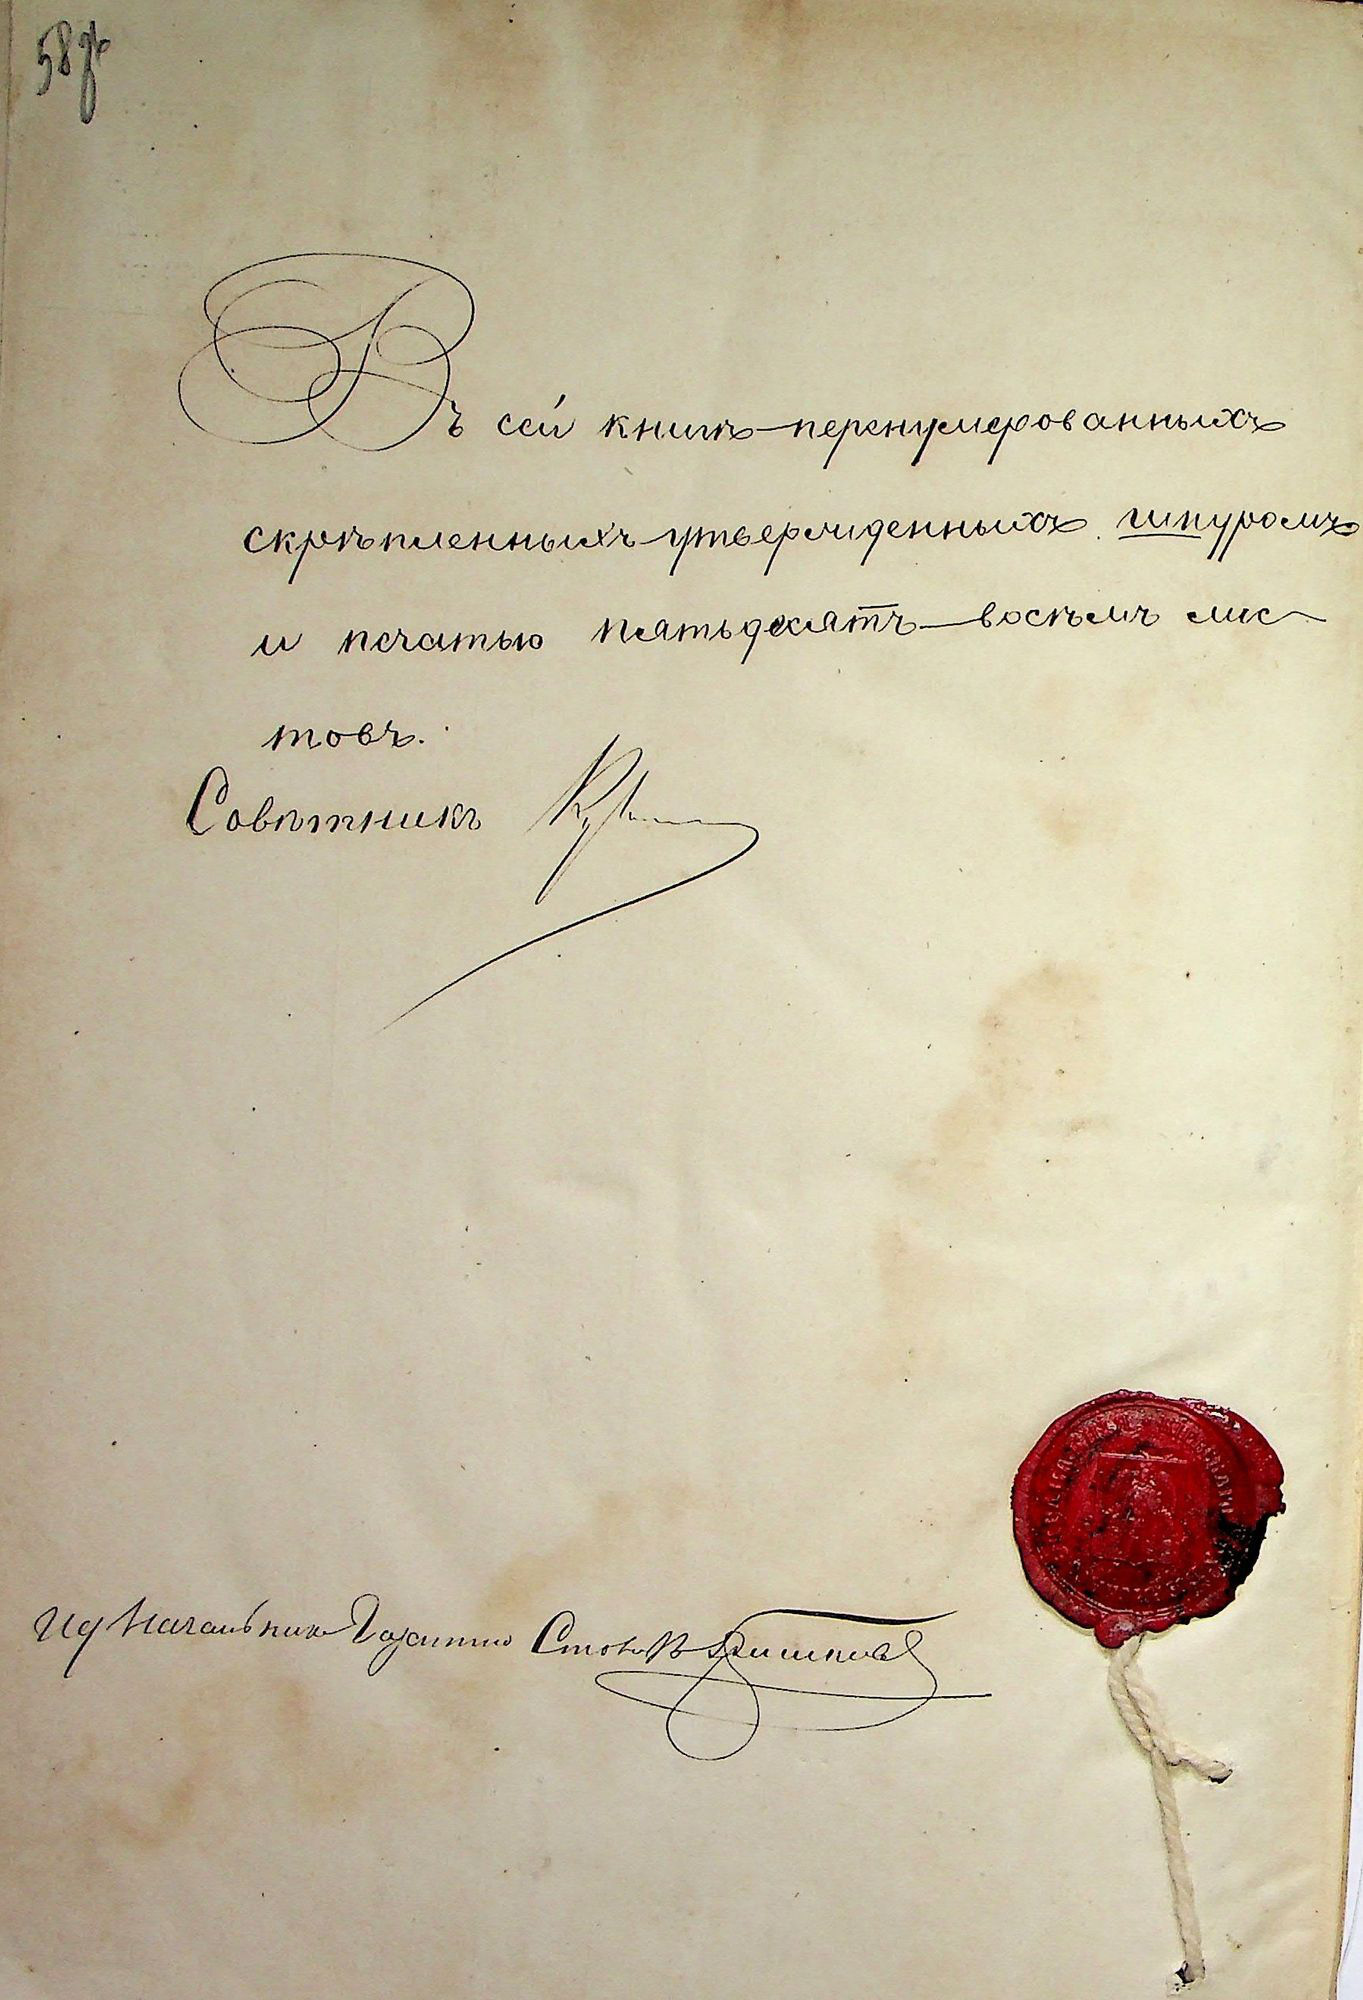 58
Въ сей книгѣ перенумерованныхъ
скрѣпленныхъ утвержденныхъ шнуромъ
и печатью пятьдесятъ восемъ лис
товъ.
Совѣтникъ
Ид Начальника Газетнаго Стола